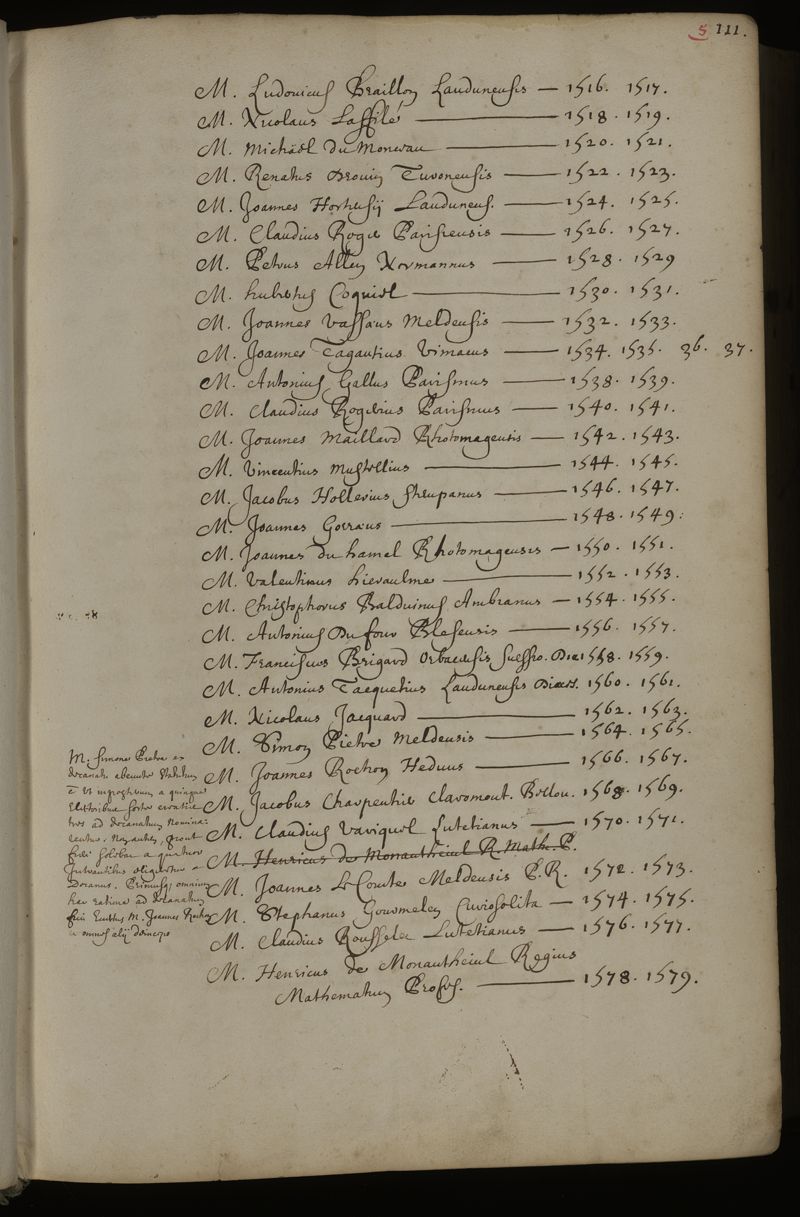 5 111.
M. Ludovicus Braillon Laudunensis — 1516. 1517.
M. Nicolaus Laffilé — 1518. 1519.
M. Michael du Monceau — 1520. 1521.
M. Renatus Drouin Turonensis — 1522. 1523.
M. Joannes Hortensij Laudunens. — 1524. 1525.
M. Claudius Roger Parisiensis — 1526. 1527.
M. Petrus Allen Normannus — 1528. 1529
M. hubertus Coquiel — 1530. 1531.
M. Joannes Vassaus Meldensis — 1532. 1533.
M. Joannes Tagautius Vimacus — 1534. 1535. 36. 37.
M. Antonius Gallus Parisinus — 1538. 1539.
M. Claudius Rogerius Parisinus — 1540. 1541.
M. Joannes Maillard Rhotomagensis — 1542. 1543.
M. Vincentius Mustellius — 1544. 1545.
M. Jacobus Hollerius Stempanus — 1546. 1547.
M. Joannes Gorraeus — 1548. 1549.
M. Joannes du hamel Rhotomagensis — 1550. 1551.
M. Valentinus hieraulme — 1552. 1553.
M. Christophorus Balduinus Ambianus — 1554. 1555.
M. Antonius Du four Blesensis — 1556. 1557.
M. Franciscus Brigard Orbacensis Suessio. Diœ. 1558. 1559.
M. Antonius Tacquetius Laudunensis Diœces. 1560. 1561.
M. Nicolaus Jacquard — 1562. 1563.
M. Simon Pietre Meldensis — 1564. 1565.
M. Joannes Rochon Heduus — 1566. 1567.
M. Jacobus Charpentier Claromont. Bellou. 1568. 1569.
M. Claudius Variquel Lutetianus — 1570. 1571.
M. Henricus de Monantheuil R. Math. P.
M. Joannes Le Comte Meldensis P. R. 1572. 1573.
M. Stephanus Gourmelen Curiosolita — 1574. 1575.
M. Claudius Rousselet Lutetianus — 1576. 1577.
M. Henricus de Monantheuil Regius
Mathematum Profes. — 1578. 1579.
M. Simone Pietre ex
decanatu abeunte statutum
e Ut in posterum a quinque
Electoribus sorte
tres ad decanatum nomina-
rentur. Non autem, prout
fieri solebat a quatuor
Intrantibus eligeretur
Decanus. Primusq; omnium
hac ratione ad decanatum
fuit Euectus M. Joannes Rochon
omnes alij deinceps